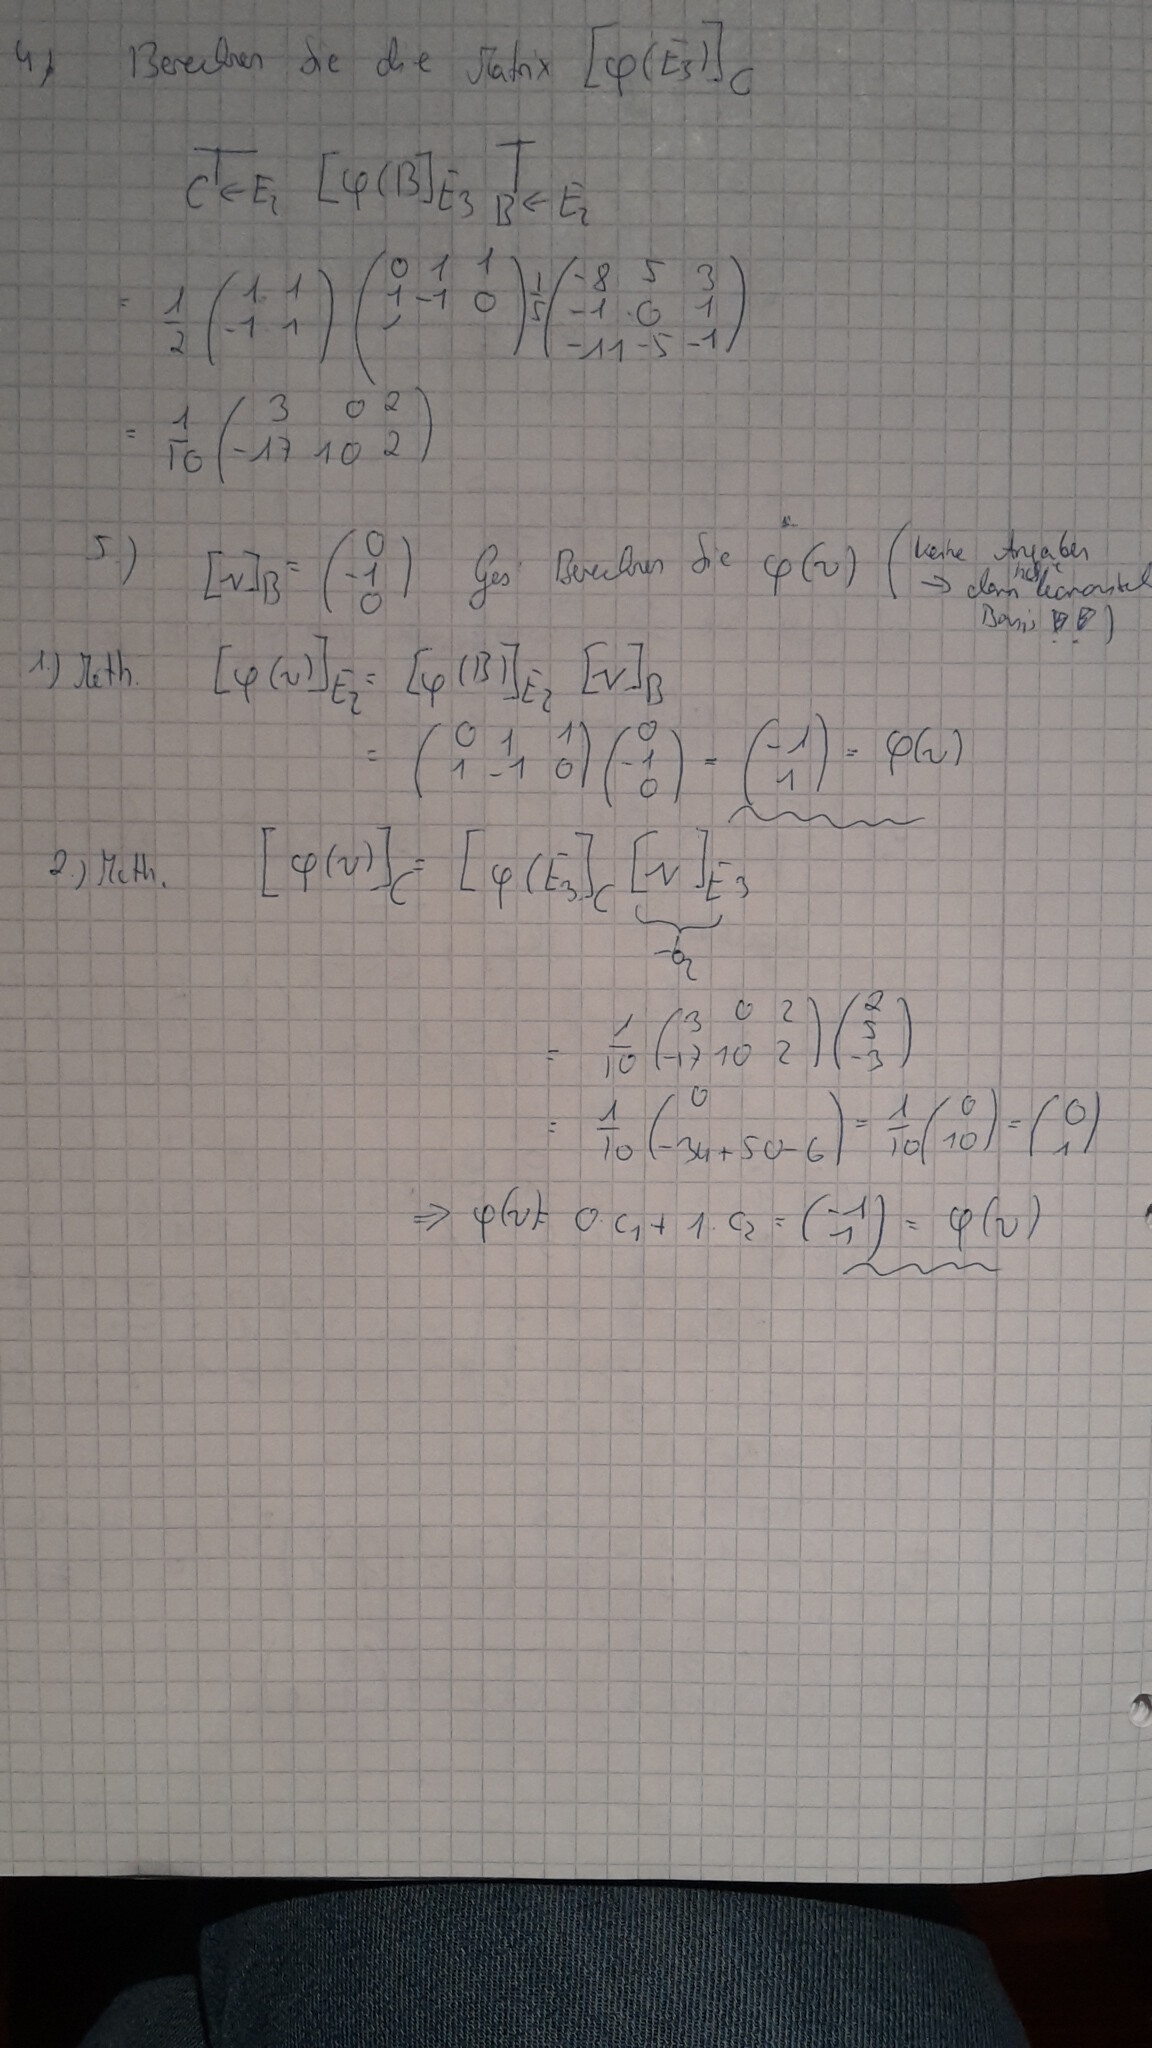 4.) Berechnen Sie die Matrix [φ(E₃)]_C
T_{C←E₂} [φ(B)]_{E₃} T_{B←E₂}
= 1/2 (1 1; -1 1) (0 1 1; 1 -1 0) 1/5 (-8 5 3; -1 0 1; -11 -5 -1)
= 1/10 (3 0 2; -17 10 2)
5.) [v]_B = (0; -1; 0) Ges: Berechnen Sie φ(v) (keine Angaben
→ dann kanonische
Basis !!)
1.) Meth. [φ(v)]_{E₂} = [φ(B)]_{E₂} [v]_B
= (0 1 1; 1 -1 0) (0; -1; 0) = (-1; 1) = φ(v)
2.) Meth. [φ(v)]_C = [φ(E₃)]_C [v]_{E3}
= 1/10 (3 0 2; -17 10 2) (2; 5; -3)
= 1/10 (0; -34+50-6) = 1/10 (0; 10) = (0; 1)
⇒ φ(v) = 0·c₁ + 1·c₂ = (-1; 1) = φ(v)